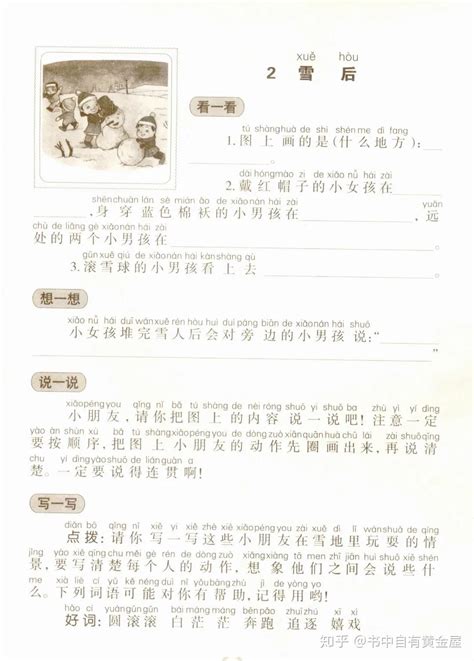 xuě hòu
2 雪 后
看一看
tú shànghuà de shì shénme dì fang
1.图上画的是(什么地方):
dài hóngmào zi de xiǎo nǚ hái zài
2.戴红帽子的小女孩在
shēnchuān lán sè mián ǎo de xiǎonán hái zài yuǎn
,身穿蓝色棉袄的小男孩在 ,远
chù de liǎng gè xiǎonán hái zài
处的两个小男孩在
gǔn xuě qiú de xiǎonán hái kàn shàng qù
3.滚雪球的小男孩看上去
想一想
xiǎo nǚ hái duī wán xuě rén hòu huì duì páng biān de xiǎonán hái shuō
小女孩堆完雪人后会对旁边的小男孩说:“
”
说一说
xiǎopéngyou qǐng nǐ bǎ tú shàng de nèi róng shuō yi shuō ba zhù yì yí dìng
小朋友,请你把图上的内容说一说吧!注意一定
yào àn shùn xù bǎ tú shàng xiǎopéngyou de dòng zuò xiān quān huà chū lái zài shuō qīng
要按顺序,把图上小朋友的动作先圈画出来,再说清
chu yí dìng yào shuō de lián guàn a
楚。一定要说得连贯啊!
写一写
diǎn bō qǐng nǐ xiě yi xiě zhè xiē xiǎopéngyou zài xuě dì li wán shuǎ de qíng
点拨:请你写一写这些小朋友在雪地里玩耍的情
jǐng yào xiě qīng chu měi gè rén de dòng zuò xiǎng xiàng tā men zhī jiān huì shuō xiē shén
景,要写清楚每个人的动作,想象他们之间会说些什
me xià liè cí yǔ kě néng duì nǐ yǒu bāng zhù jì de yòng yo
么。下列词语可能对你有帮助,记得用哟!
hǎo cí yuángǔn gǔn bái máng máng bēn pǎo zhuī zhú xī xì
好词:圆滚滚 白茫茫 奔跑 追逐 嬉戏
知乎 @书中自有黄金屋